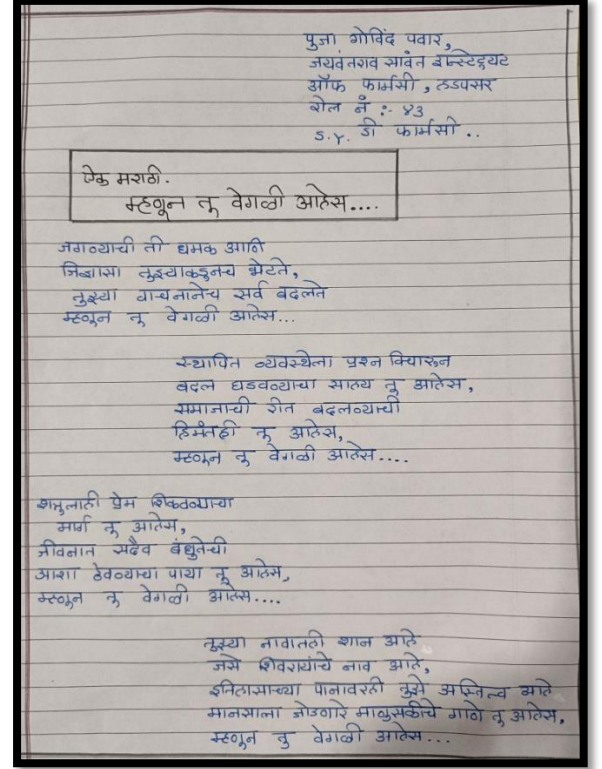 पुजा गोविंद पवार,
जयवंतराव सावंत इन्स्टिट्युट
ऑफ फार्मसी, हडपसर
रोल नं :- ४३
S.Y. डी फार्मसी ..
ऐक मराठी.
म्हणून तू वेगळी आहेस....
जगण्याची ती धमक आणि
जिज्ञासा तुझ्याकडूनच भेटते,
तुझ्या वाचनानेच सर्व बदलते
म्हणून तू वेगळी आहेस...
स्थापित व्यवस्थेला प्रश्न विचारून
बदल घडवण्याचा साहय तू आहेस,
समाजाची रीत बदलण्याची
हिमंतही तू आहेस,
म्हणून तू वेगळी आहेस....
शत्रुलाही प्रेम शिकवण्याचा
मार्ग तू आहेस,
जीवनात सदैव बंधुतेची
आशा ठेवण्याचा पाया तू आहेस,
म्हणून तू वेगळी आहेस....
तुझ्या नावातही शान आहे
जसे शिवरायांचे नाव आहे,
इतिहासाच्या पानावरही तुझे अस्तित्व आहे
मानसाला जोडणारे माणुसकीचे गाणे तू आहेस,
म्हणून तू वेगळी आहेस...